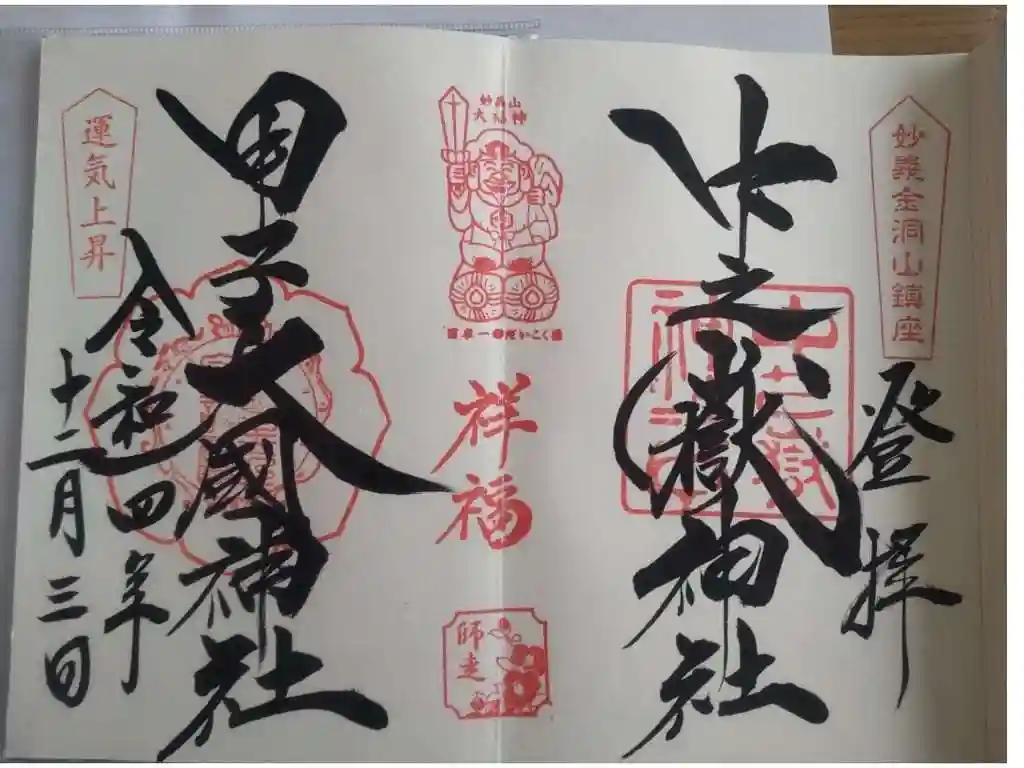 妙義金洞山鎮座
登拝
中之嶽神社
中之嶽
神社
妙義山
大福神
日本一のだいこく様
祥福
師走
甲子大國神社
運気上昇
令和四年
十二月三日